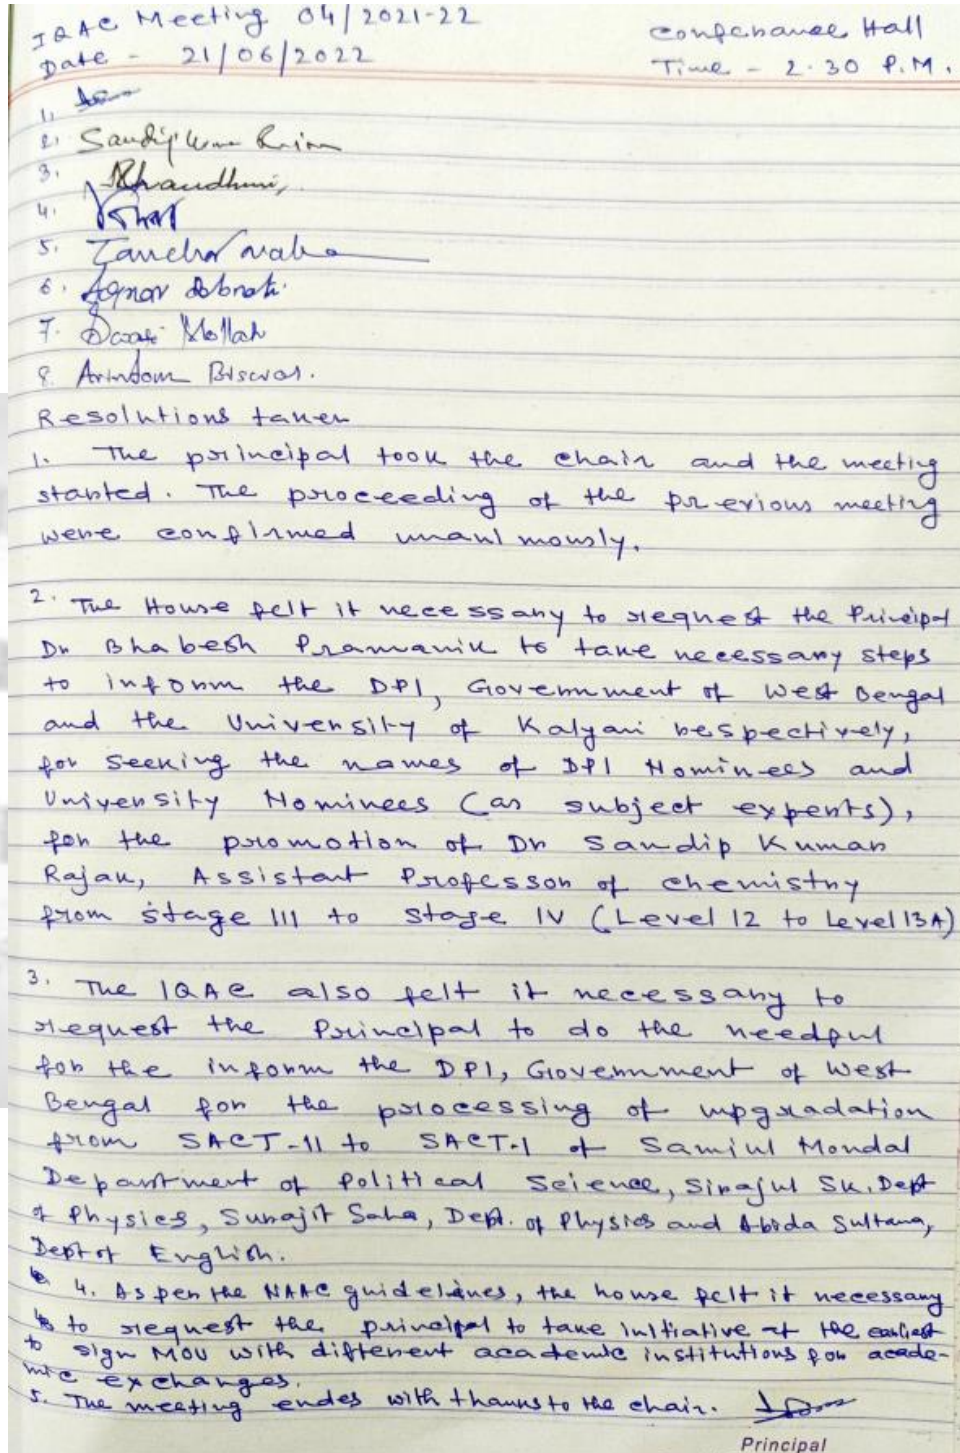 IQAC Meeting 04/2021-22
Conferance Hall
Date - 21/06/2022
Time - 2.30 P.M.
1.
2. Sandip Kumar
3.
4.
5.
6.
7. Mollah
8. Arindam Biswas.
Resolutions taken
1. The principal took the chair and the meeting
started. The proceeding of the previous meeting
were confirmed unanimously.
2. The House felt it necessary to request the Principal
Dr Bhabesh Pramanik to take necessary steps
to inform the DPI, Government of West Bengal
and the University of Kalyani respectively,
for seeking the names of DPI Nominees and
University Nominees (as subject experts),
for the promotion of Dr Sandip Kumar
Rajak, Assistant Professor of chemistry
from stage III to stage IV (Level 12 to Level 13A)
3. The IQAC also felt it necessary to
request the Principal to do the needful
for the inform the DPI, Government of West
Bengal for the processing of upgradation
from SACT-II to SACT-I of Samiul Mondal
Department of Political Science, Sirajul Sk. Dept
of Physics, Surajit Saha, Dept. of Physics and Abida Sultana,
Dept of English.
4. As per the NAAC guidelines, the house felt it necessary
to request the principal to take initiative at the earliest
to sign MOU with different academic institutions for acade-
mic exchanges.
5. The meeting endes with thanks to the chair.
Principal